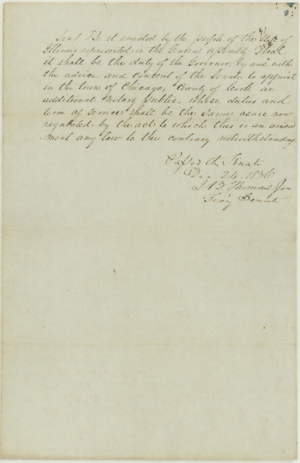 Sec 1 Be it enacted by the people of the State of
Illinois represented in the General assembly That
it shall be the duty of the Governor by and with
the advice and consent of the Senate to appoint
in the town of Chicago, County of Cook an
additional Notary Public, whose duties and
term of service shall be the same as are now
regulated by the act to which this is an amend
ment any law to the contrary notwithstanding
Passed the Senate
Dec 24. 1836
J B Thomas Jun
Secy Senate